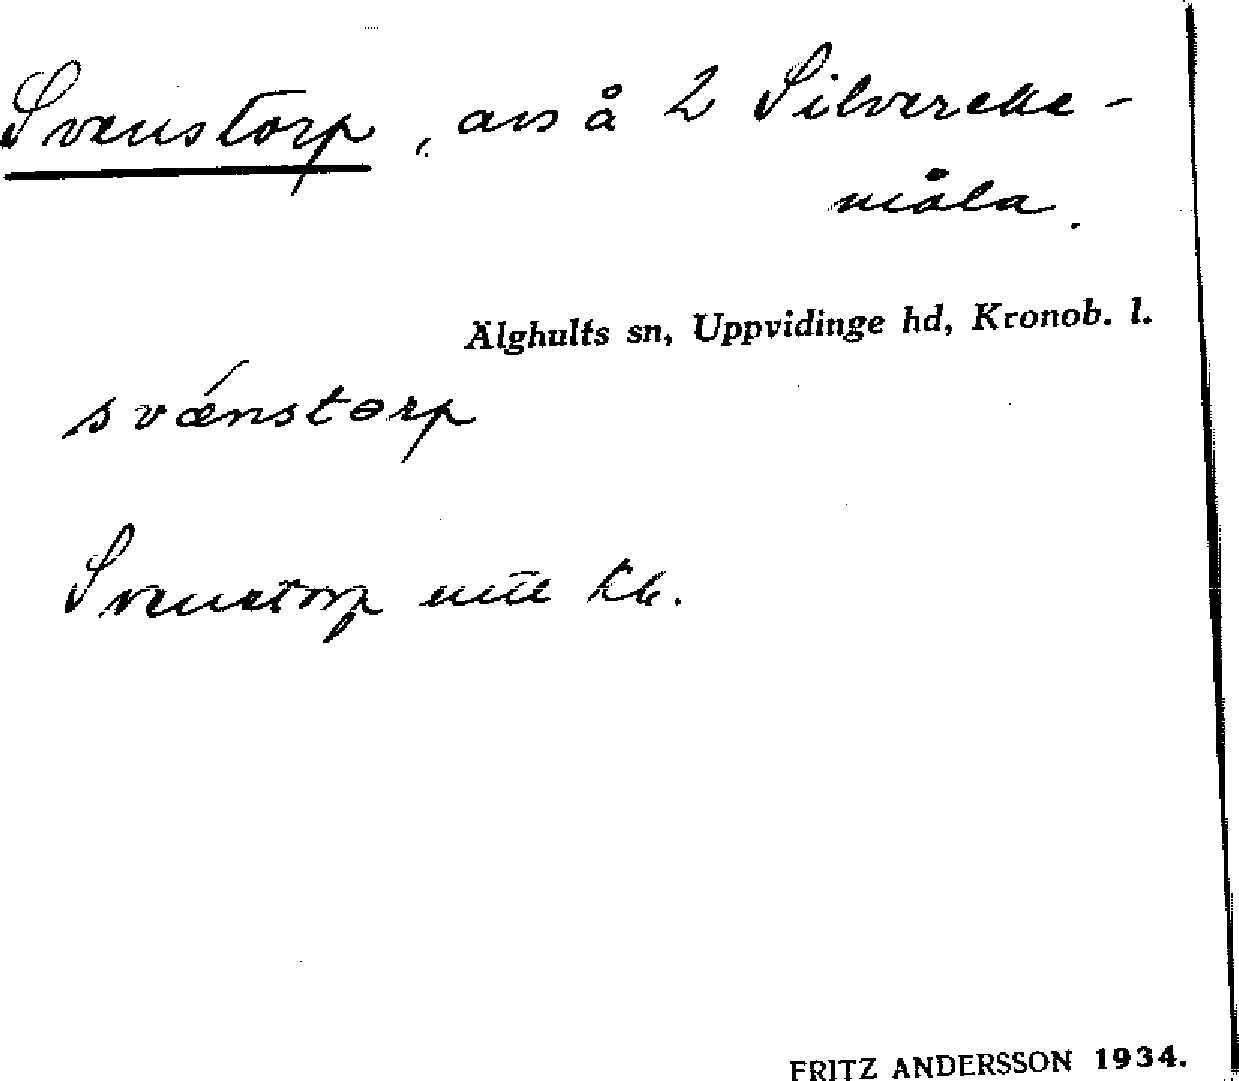 Svenstorp, avs å 2 Silvereke-
måla.
Älghults sn, Uppvidinge hd, Kronob. l.
svǽnstorp
Svenstorp
FRITZ ANDERSSON 1934.